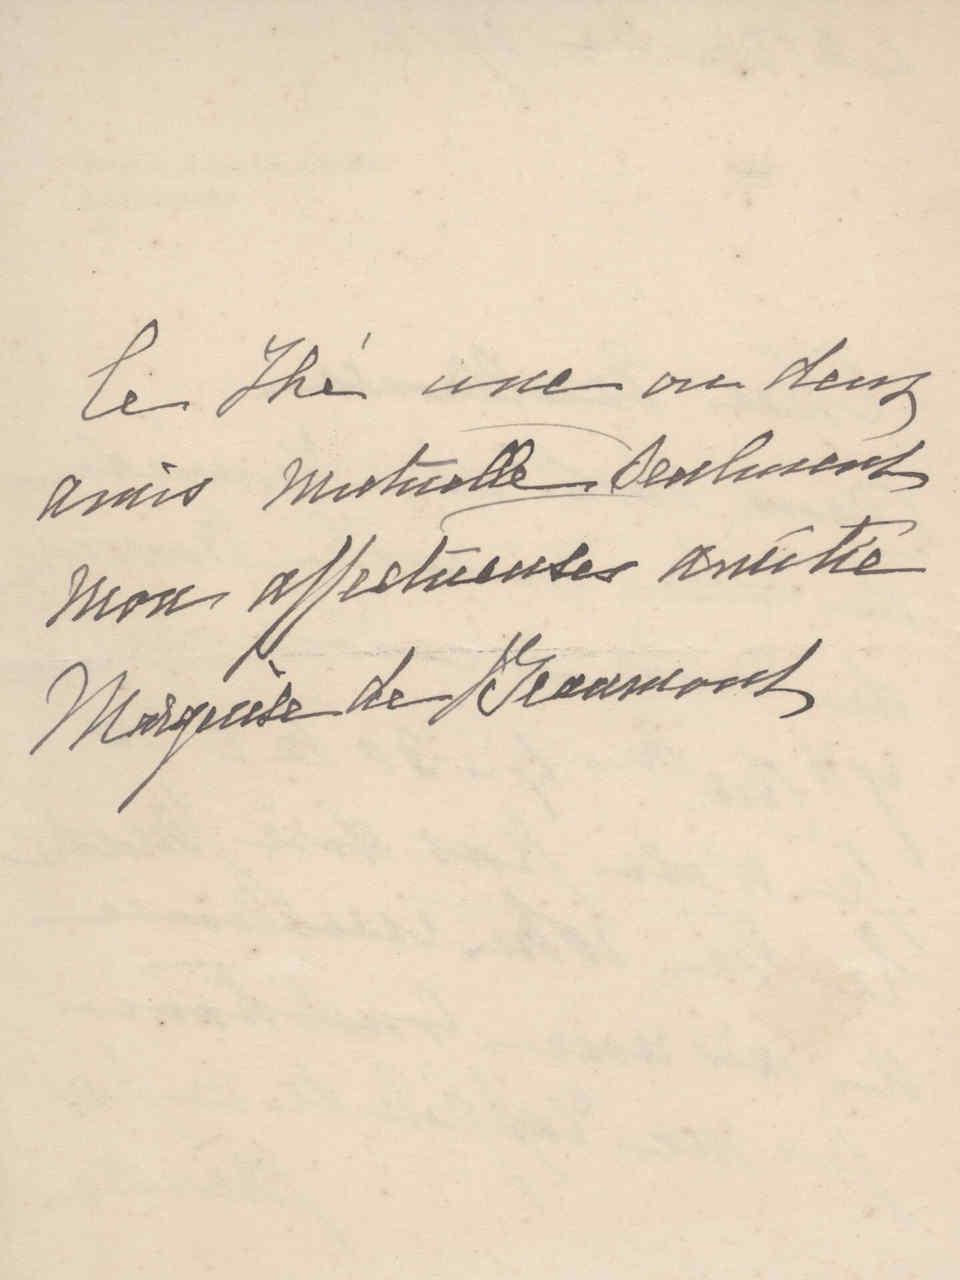 le Thé une ou deux
amis mutuelle seulement
mon affectueuses amitié
Marquise de Beaumont